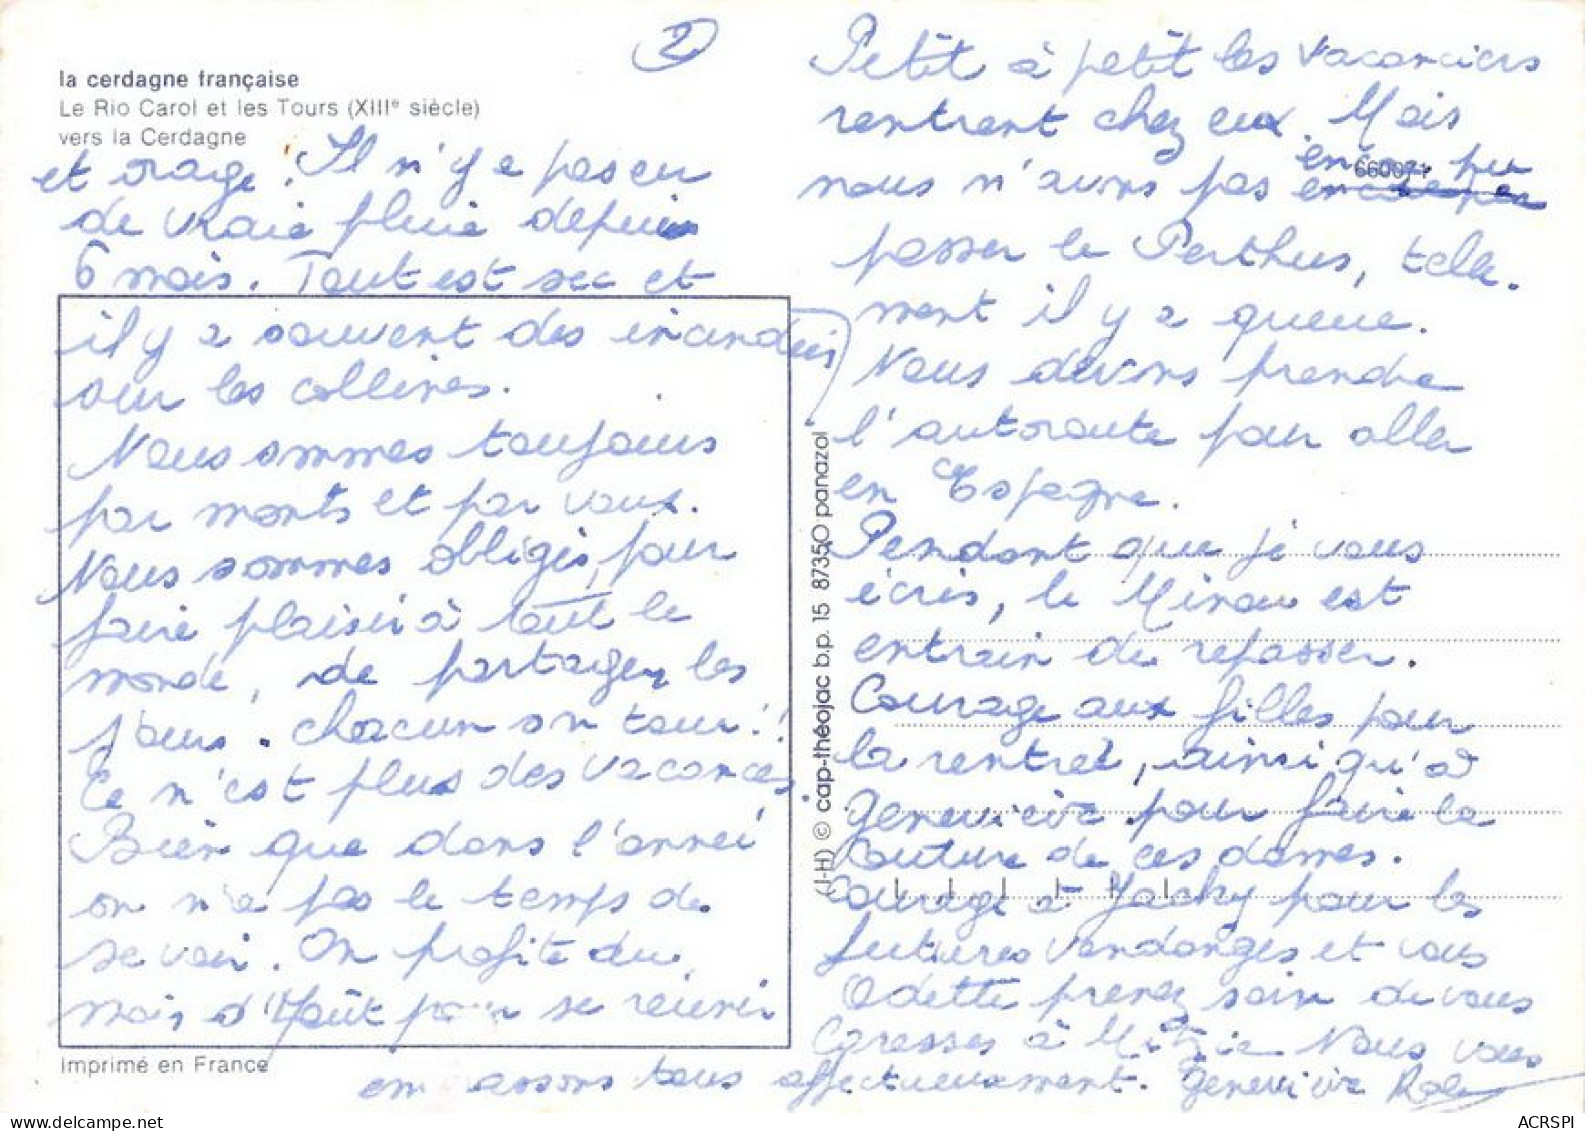 2
la cerdagne française
Le Rio Carol et les Tours (XIIIe siècle)
vers la Cerdagne
et orage. Il n'y a pas eu
de vraie pluie depuis
6 mois. Tout est sec et
il y a souvent des incendies
sur les collines.
Nous sommes toujours
par monts et par vaux.
Nous sommes obligés, pour
faire plaisir à tout le
monde, de partager les
jours. chacun son tour!!
Ce n'est plus des vacances.
Bien que dans l'année
on n'a pas le temps de
se voir. On profite du
mois d'Août pour se réunir
Imprimé en France
Petit à petit les vacanciers
rentrent chez eux. Mais
encore pu
660071
nous n'avons pas
passer le Perthus, telle-
ment il y a queue.
Nous devons prendre
l'autoroute pour aller
en Espagne.
Pendant que je vous
écris, le Minou est
entrain de repasser.
Courage aux filles pour
la rentrée, ainsi qu'à
Geneviève pour faire la
couture de ces dames.
Courage à Jacky pour les
futures vendanges et vous
Odette prenez soin de vous
Caresses à Mitzie Nous vous
embrassons tous affectueusement. Geneviève
(J-H) © cap-théojac b.p. 15 87350 panazol
ACRSPI